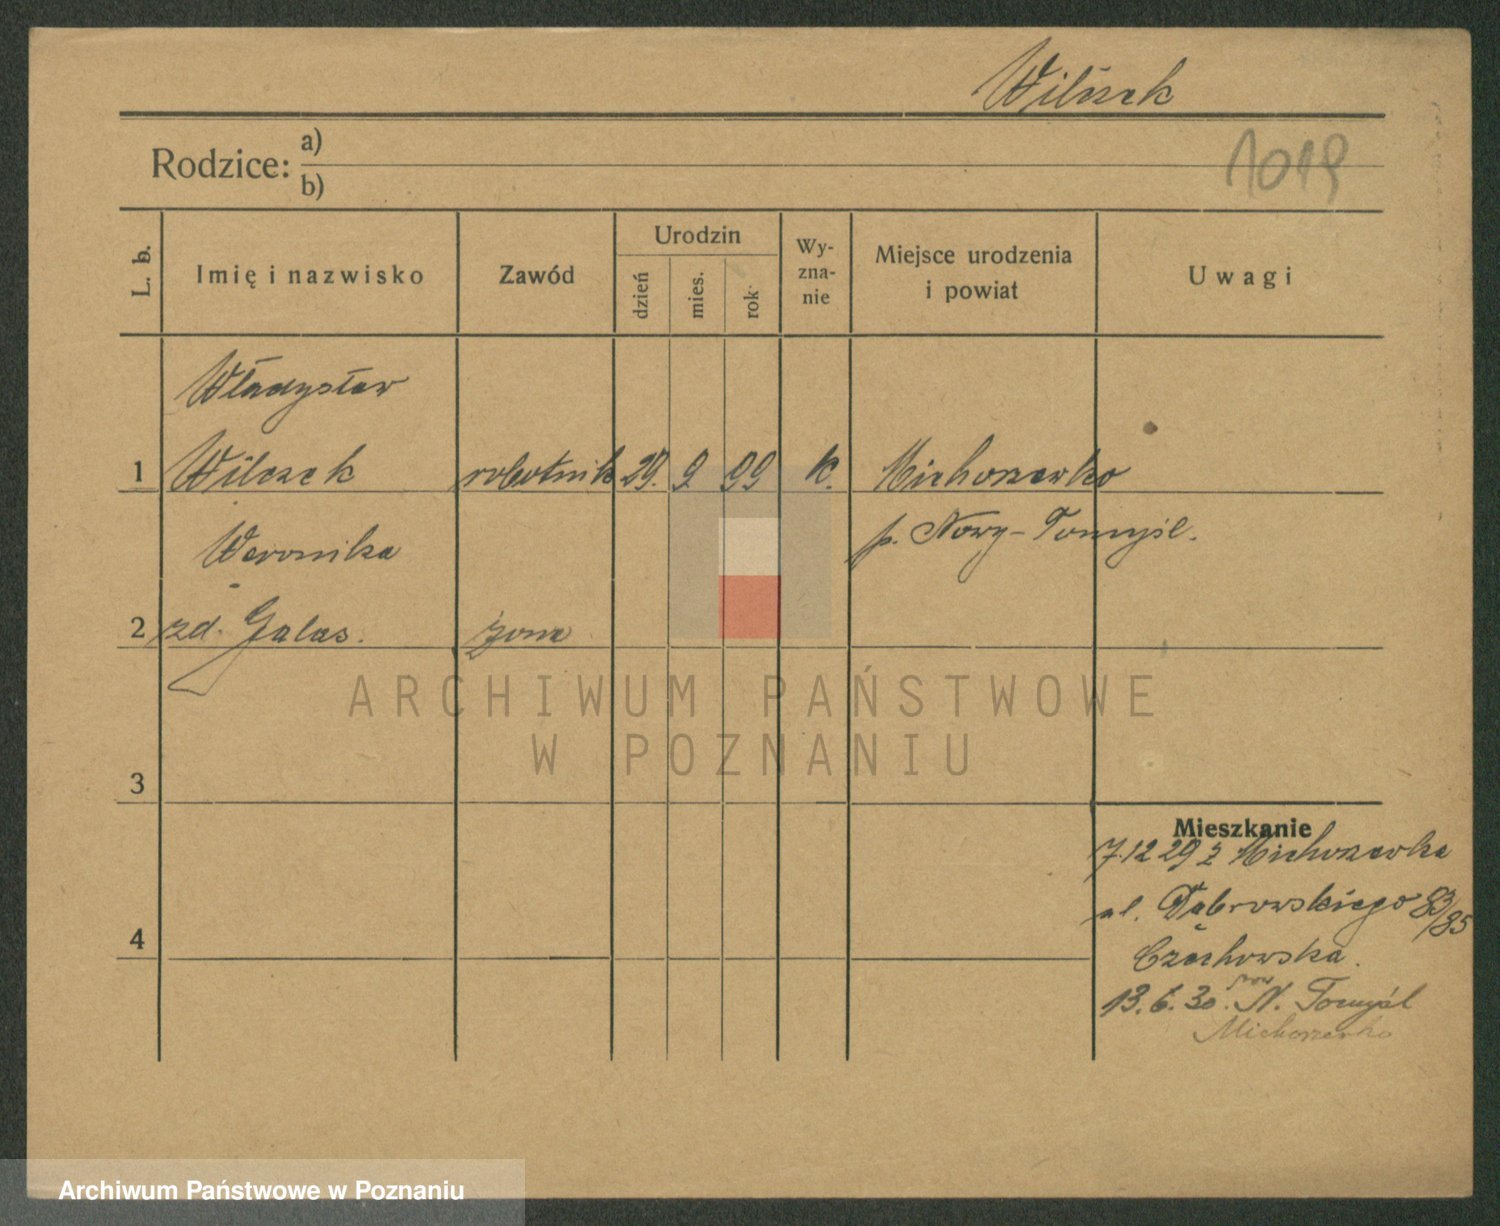 Wilczek
Rodzice: a)
b)
1019
L. b.
Imię i nazwisko
Zawód
Urodzin
dzień
mies.
rok
Wy-
zna-
nie
Miejsce urodzenia
i powiat
Uwagi
Władysław
1 Wilczek robotnik 29. 9 99 k. Michorzewko
p. Nowy-Tomyśl.
Weronika
2 zd. Galas. żona
ARCHIWUM PAŃSTWOWE
W POZNANIU
3
Mieszkanie
7.12 29 z Michorzewka
ul. Dąbrowskiego 83/85
4
Czechowska.
13.6.30. pow N. Tomyśl
Michorzewko
Archiwum Państwowe w Poznaniu